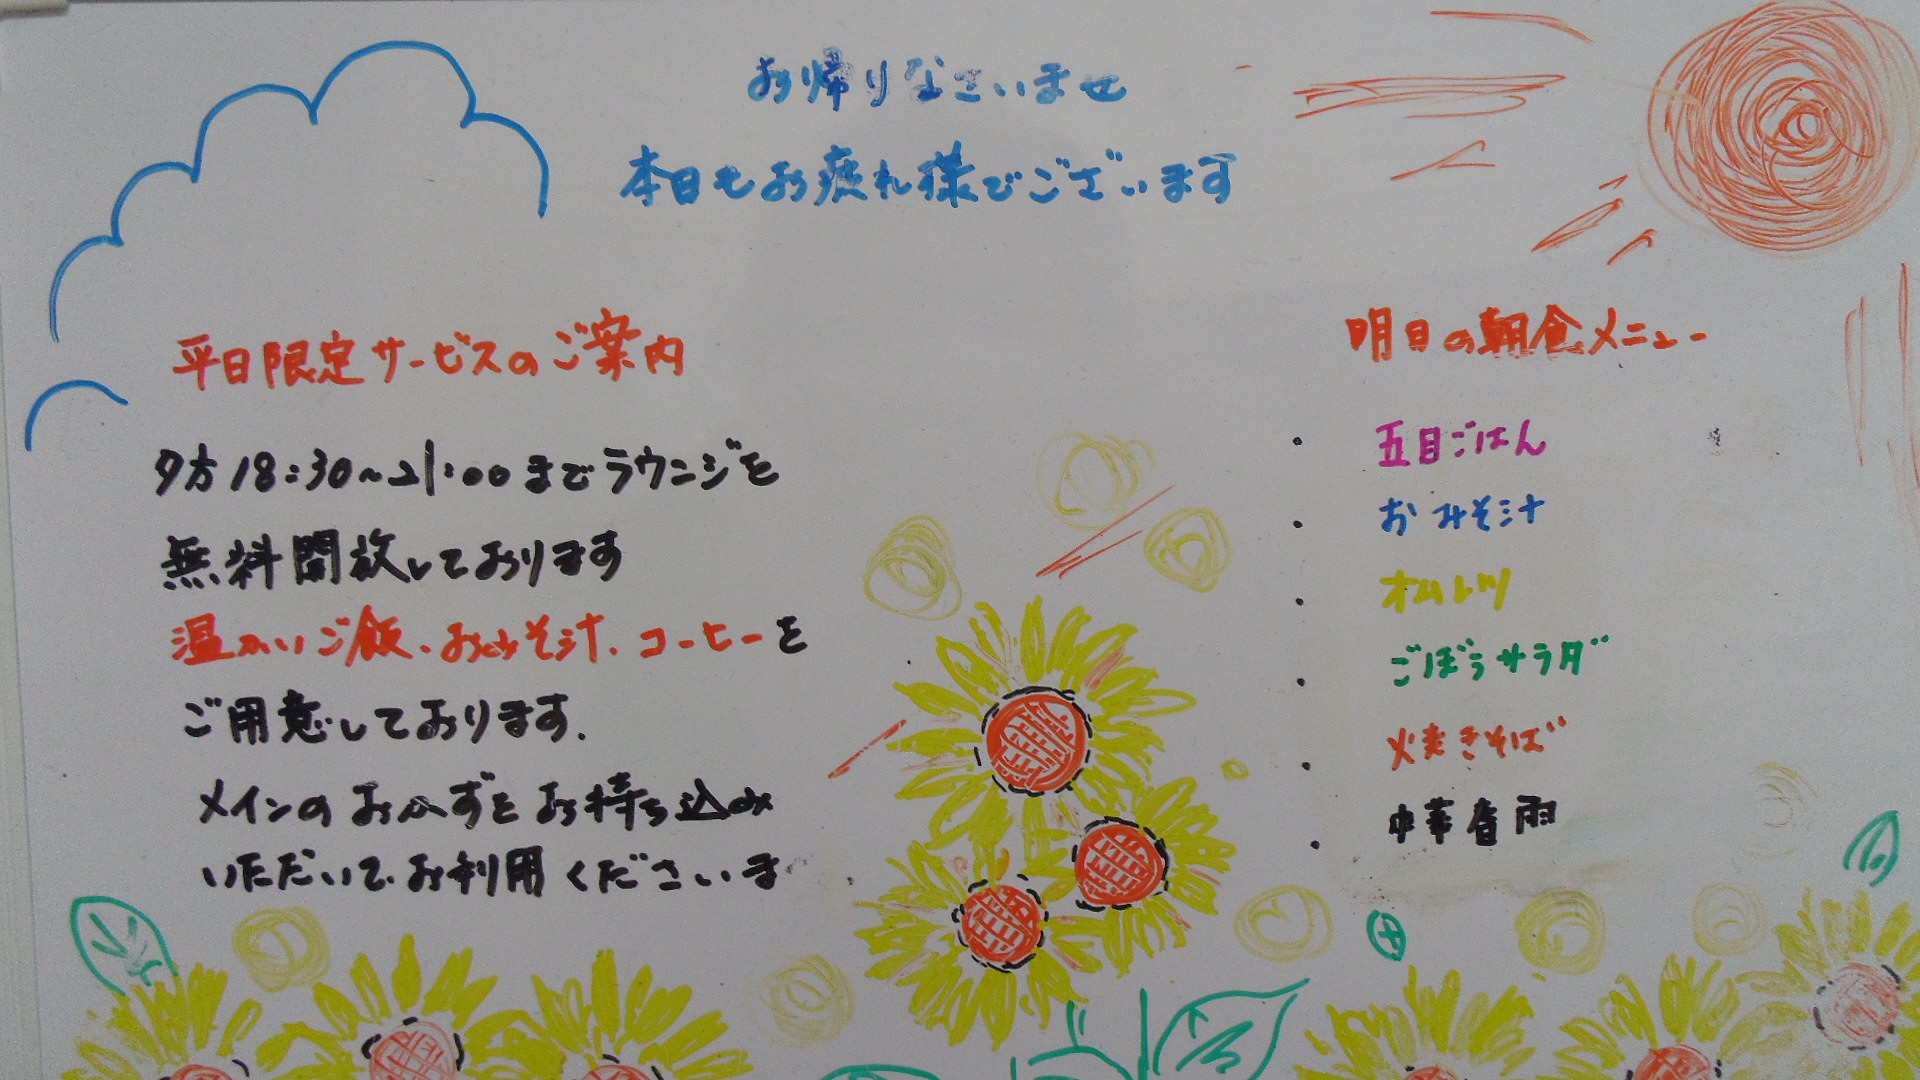 お帰りなさいませ
本日もお疲れ様でございます
平日限定サービスのご案内
夕方18:30~21:00までラウンジを
無料開放しております
温かいご飯、おみそ汁、コーヒーを
ご用意しております.
メインのおかずをお持ち込み
いただいて、お利用くださいま
明日の朝食メニュー
・ 五目ごはん
・ おみそ汁
・ オムレツ
・ ごぼうサラダ
・ 焼きそば
・ 中華春雨